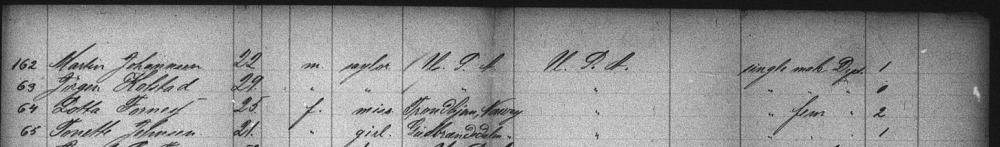 162 Martin Johannesen 22 m. saylor U. S. A U. S. A. single male Dpt. 1
63 Jörgen Kolstad 29 " " " " " " " 0
64 Lotta 25 f. miss Trondhjem, Norway " " fem " 2
65 Tonette Johnsen 21 " girl. Gudbrandsdalen " " " " " 1